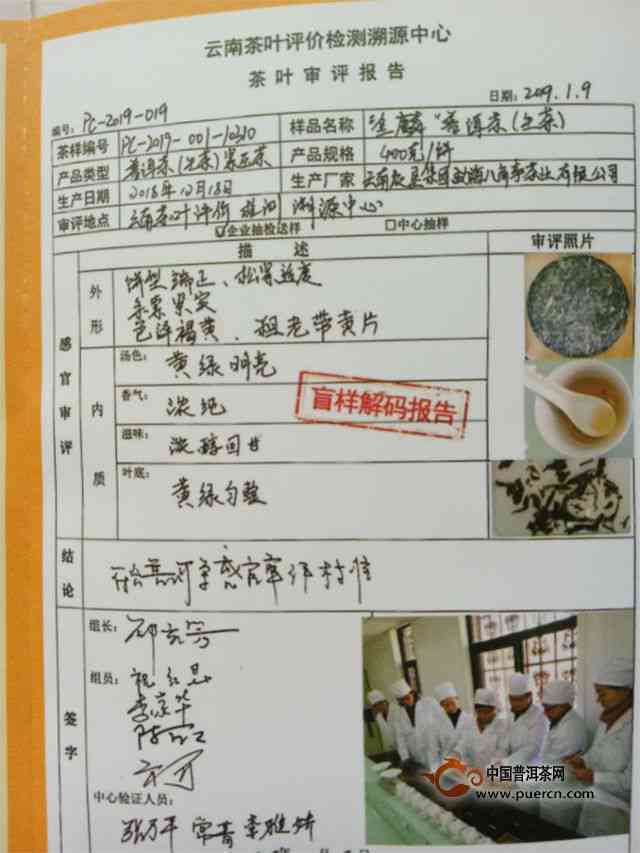 云南茶叶评价检测溯源中心
茶叶审评报告
编号: PC-2019-019
日期: 2019.1.9
茶样编号 PC-2019-001-10310 样品名称 "金麟"普洱茶(生茶)
产品类型 普洱茶(生茶)紧压茶 产品规格 400克/饼
生产日期 2018年12月18日 生产厂家 云南 集团勐海八角亭茶业有限公司
审评地点 云南茶叶评价检测溯源中心
☑企业抽检送样 □中心抽样
描述 审评照片
感官审评
外形
饼型端正、松紧适度
条索紧实
色泽褐黄、粗老带黄片
内质
汤色: 黄绿明亮
香气: 淡纯
滋味: 淡醇回甘
叶底: 黄绿匀整
盲样解码报告
结论
符合普洱茶感官审评标准
签字
组长:
组员:
中心验证人员:
中国普洱茶网
www.puercn.com